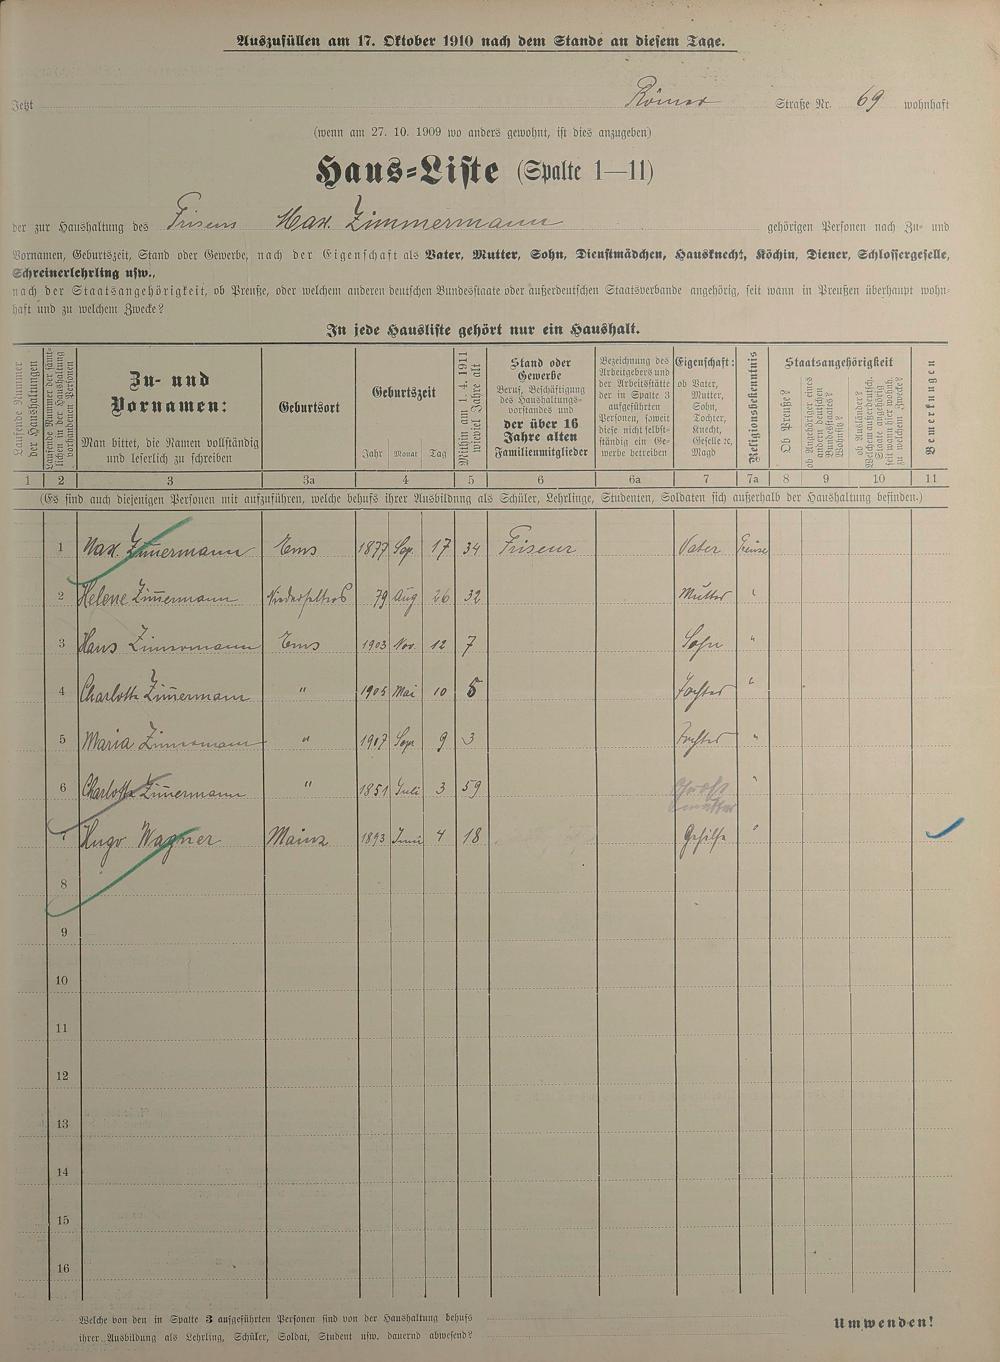 Auszufüllen am 17. Oktober 1910 nach dem Stande an diesem Tage.
Jetzt Römer Straße Nr. 69 wohnhaft
(wenn am 27. 10. 1909 wo anders gewohnt, ist dies anzugeben)
Haus-Liste (Spalte 1—11)
der zur Haushaltung des Friseurs Max. Zimmermann gehörigen Personen nach Zu- und
Vornamen, Geburtszeit, Stand oder Gewerbe, nach der Eigenschaft als Vater, Mutter, Sohn, Dienstmädchen, Hausknecht, Köchin, Diener, Schlossergeselle,
Schreinerlehrling usw.,
nach der Staatsangehörigkeit, ob Preuße, oder welchem anderen deutschen Bundesstaate oder außerdeutschen Staatsverbande angehörig, seit wann in Preußen überhaupt wohn-
haft und zu welchem Zwecke?
In jede Hausliste gehört nur ein Haushalt.
Laufende Nummer der Haushaltungen
Laufende Nummer der sämtlichen in der Haushaltung vorhandenen Personen
Zu- und
Vornamen:
Man bittet, die Namen vollständig
und leserlich zu schreiben
Geburtsort
Geburtszeit
Jahr Monat Tag
Mithin am 1. 4. 1911 wieviel Jahre alt
Stand oder
Gewerbe
Beruf, Beschäftigung
des Haushaltungs-
vorstandes und
der über 16
Jahre alten
Familienmitglieder
Bezeichnung des
Arbeitgebers und
der Arbeitsstätte
der in Spalte 3
aufgeführten
Personen, soweit
diese nicht selbst-
ständig ein Ge-
werbe betreiben
Eigenschaft:
ob Vater,
Mutter,
Sohn,
Tochter,
Knecht,
Geselle ec,
Magd
Religionsbekenntnis
Staatsangehörigkeit
Ob Preuße?
ob Angehöriger eines andern deutschen Bundesstaates?
ob Ausländer? Welchem außerdeutsch. Staate angehörig seit wann hier wohnh. zu welchem Zwecke?
Bemerkungen
1 2 3 3a 4 5 6 6a 7 7a 8 9 10 11
(Es sind auch diejenigen Personen mit aufzuführen, welche behufs ihrer Ausbildung als Schüler, Lehrlinge, Studenten, Soldaten sich außerhalb der Haushaltung befinden.)
1 Max. Zimmermann Ems 1877 Sep. 17 34 Friseur Vater
2 Helene Zim̄ermann Niederselters 79 Aug 26 32 Mutter "
3 Hans Zimmermann Ems 1903 Nov. 12 7 Sohn "
4 Charlotte Zim̄ermann " 1905 Mai 10 5 Tochter "
5 Maria Zimmermann " 1907 Sep 9 3 Tochter "
6 Charlotte Zim̄ermann " 1851 Juli 3 59 Großmutter "
7 Hugo Wagner Mainz 1893 Juni 4 18 Gehilfe "
8
9
10
11
12
13
14
15
16
Welche von den in Spalte 3 aufgeführten Personen sind von der Haushaltung behufs
ihrer Ausbildung als Lehrling, Schüler, Soldat, Student usw. dauernd abwesend?
Umwenden!